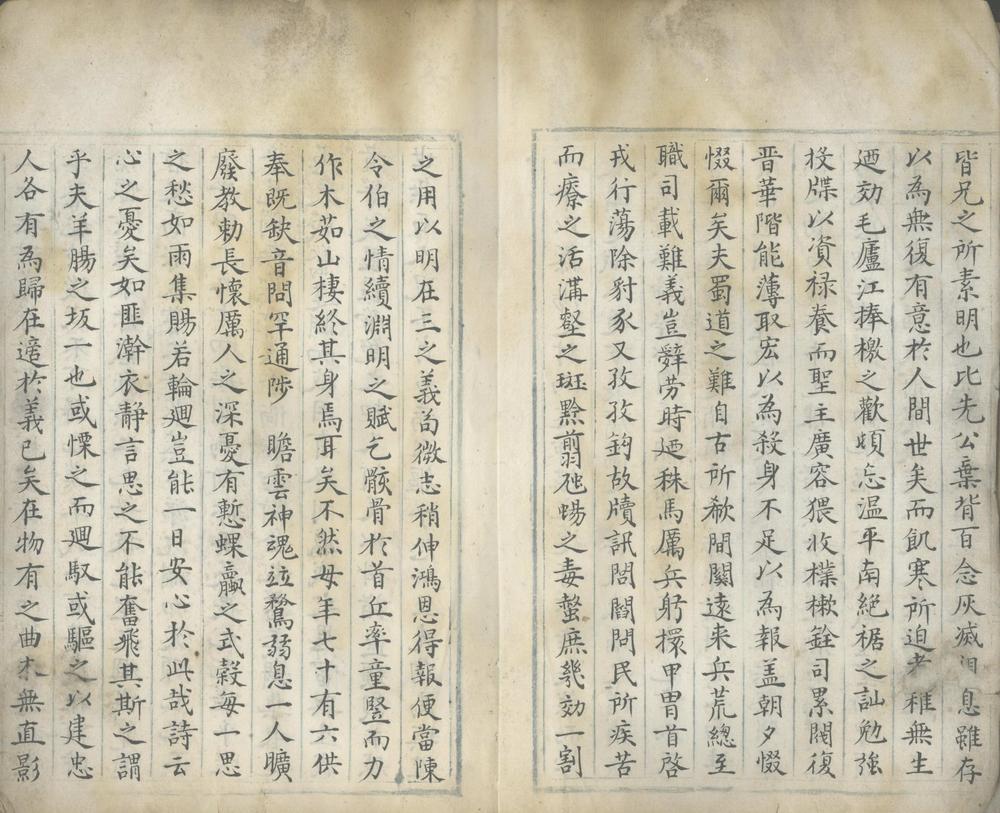 皆兄之所素明也比先公棄背百念灰滅泪息雖存
以為無復有意於人間世矣而飢寒所迫老稚無生
廼効毛廬江捧檄之歡頓忘溫平南絶裾之訕勉強
投牒以資禄養而聖主廣容猥收樸樕銓司累闊復
晉華階能薄取宏以為殺身不足以為報盖朝夕惙
惙爾矣夫蜀道之難自古所欷間關遠来兵荒緫至
職司載難義豈辭劳時廼秣馬厲兵躬擐甲胄首啓
戎行蕩除豺豕又孜孜鈎故牘訊閭閻問民所疾苦
而療之活溝壑之斑黔翦虺蜴之毒螫庶幾効一割
之用以明在三之義苟微志稍伸鴻恩得報便當陳
令伯之情續淵明之賦乞骸骨於首丘率童豎而力
作木茹山棲終其身焉耳矣不然母年七十有六供
奉既缺音問罕通陟 瞻雲神魂竝騖弱息一人曠
廢教勅長懷厲人之深憂有慙蜾蠃之式穀每一思
之愁如雨集腸若輪迴豈能一日安心於此哉詩云
心之憂矣如匪澣衣靜言思之不能奮飛其斯之謂
乎夫羊腸之坂一也或慄之而迴馭或驅之以建忠
人各有為歸在適於義已矣在物有之曲木無直影